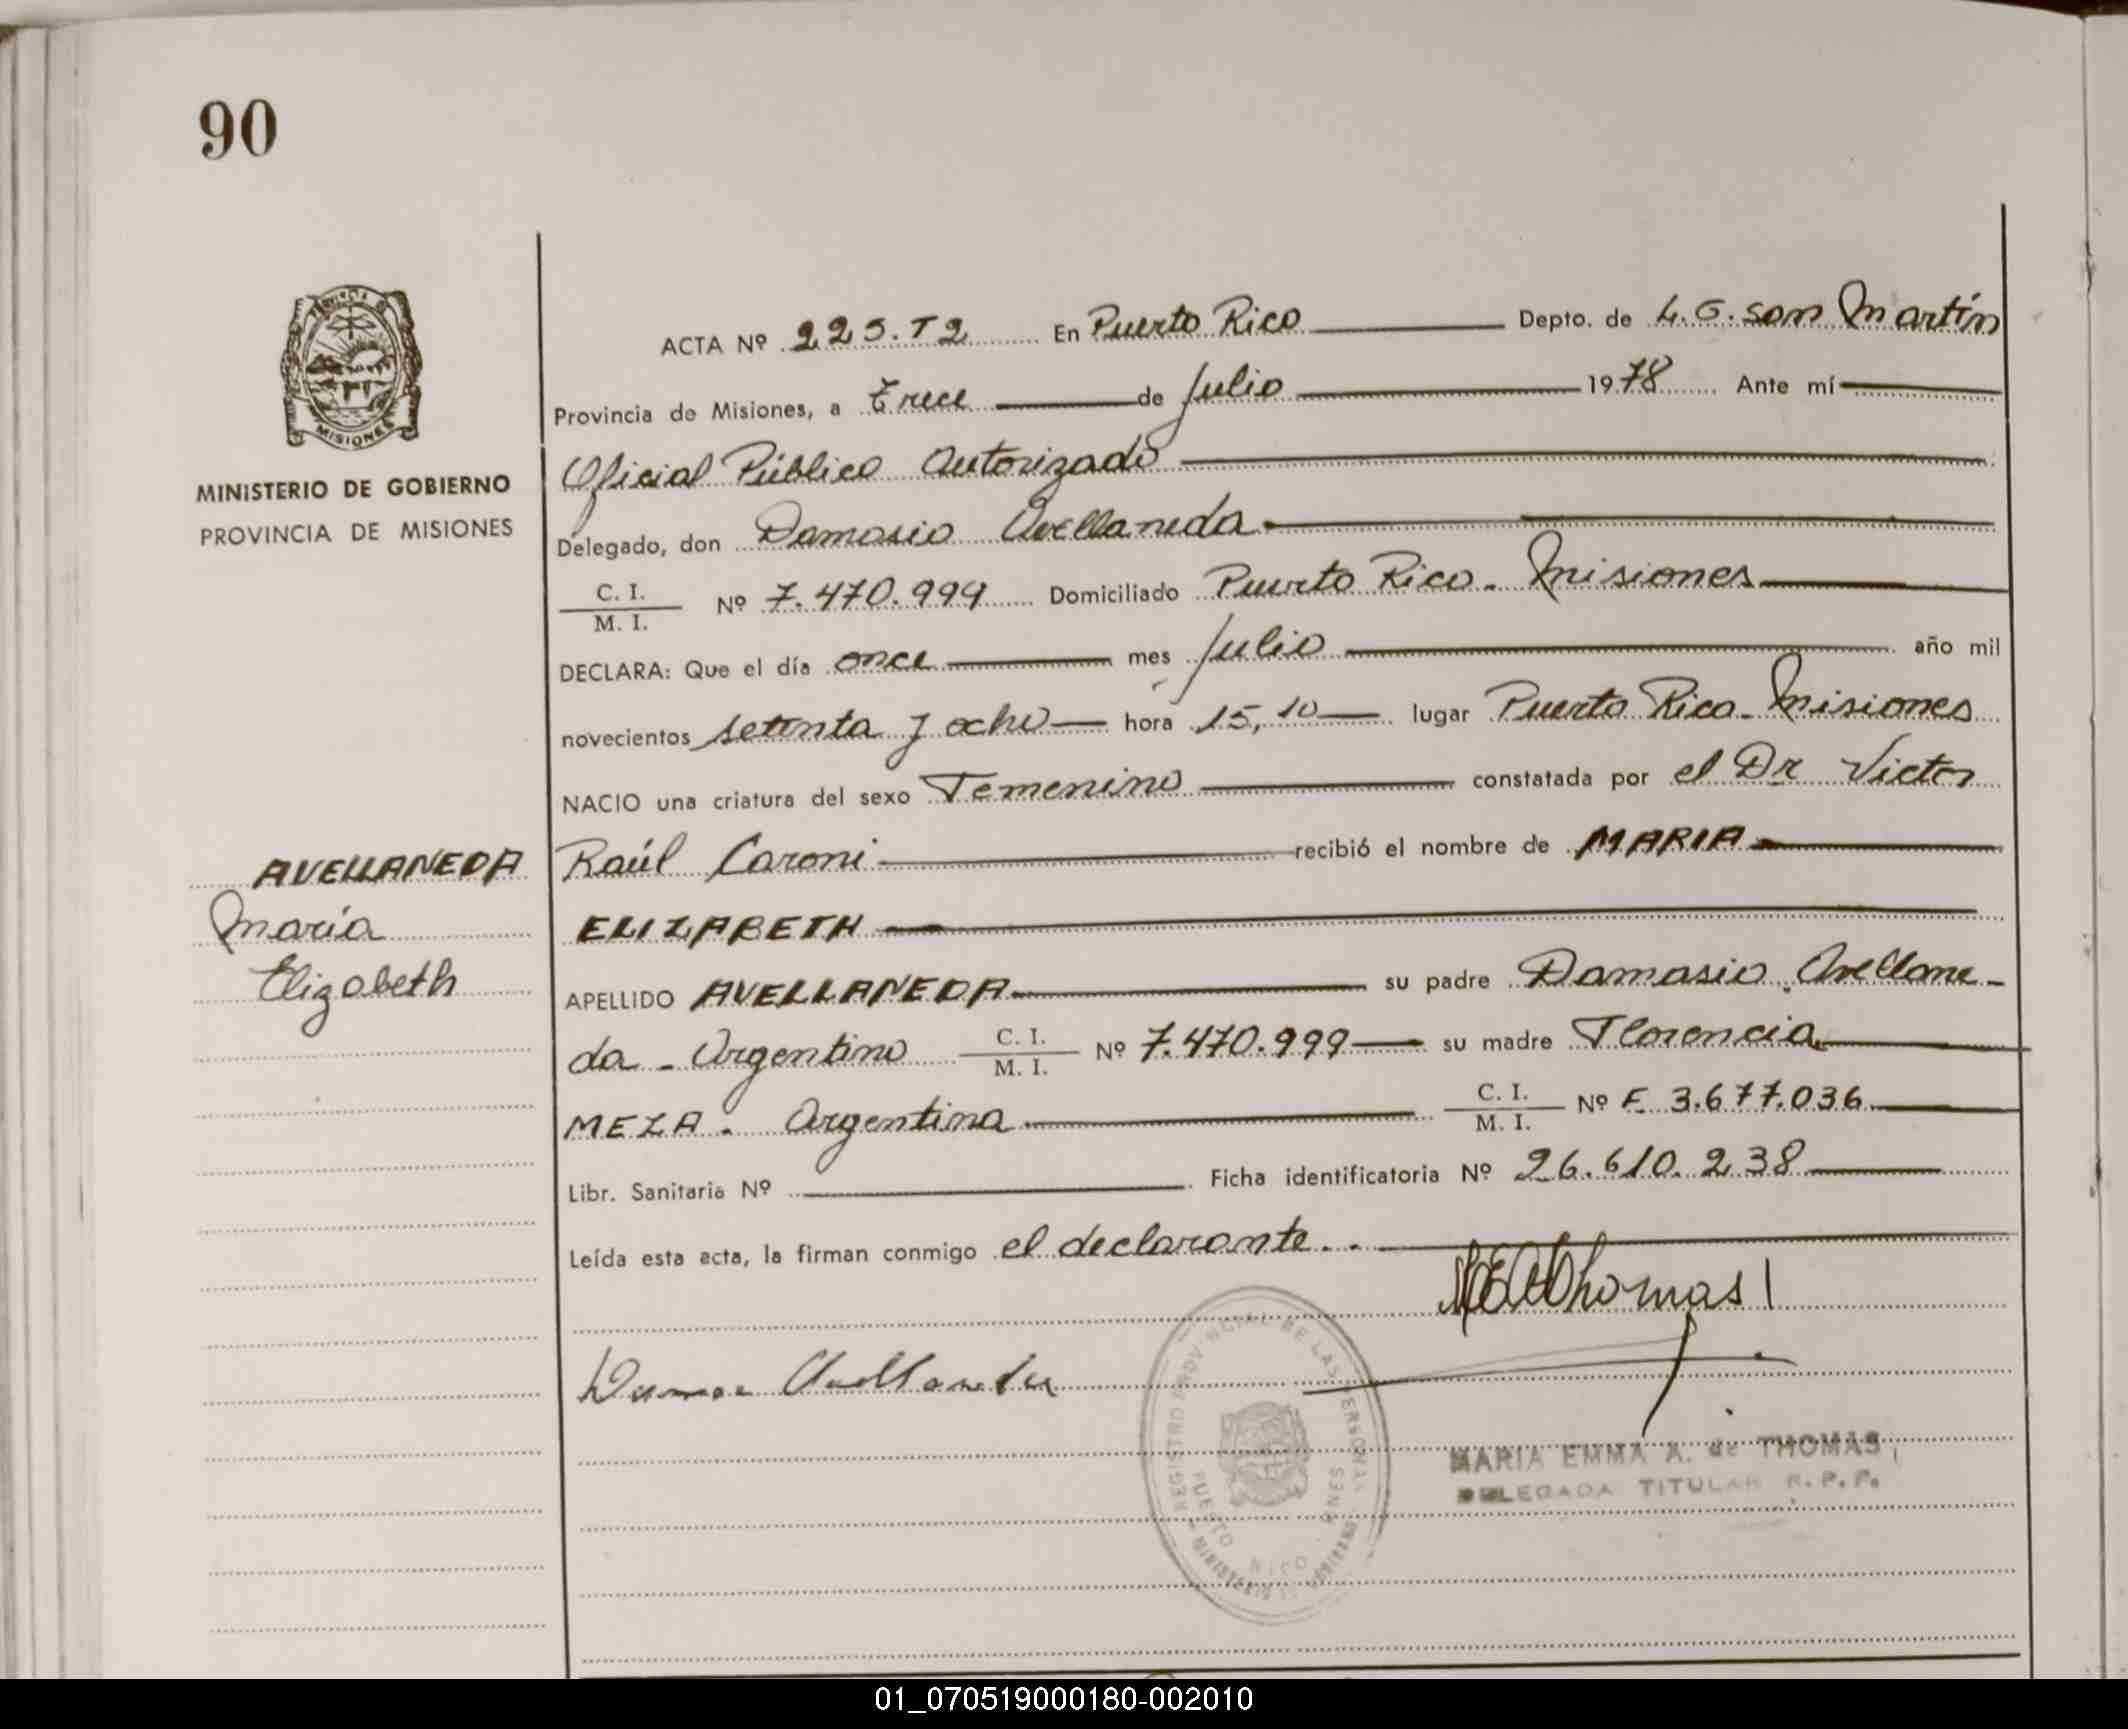 90
MINISTERIO DE GOBIERNO
PROVINCIA DE MISIONES
ACTA Nº 225.T2 En Puerto Rico Depto. de L.G. San Martín
Provincia de Misiones, a trece de Julio 1978 Ante mí
Oficial Público Autorizado
Delegado, don Damasio Avellaneda
C. I.
M. I. Nº 7.470.999 Domiciliado Puerto Rico - Misiones
DECLARA: Que el día once mes Julio año mil
novecientos setenta y ocho hora 15,10 lugar Puerto Rico - Misiones
NACIO una criatura del sexo Femenino constatada por el Dr Victor
Raúl Caroni recibió el nombre de MARIA
ELIZABETH
APELLIDO AVELLANEDA su padre Damasio Avellane-
da - Argentino C. I.
M. I. Nº 7.470.999 su madre Florencia
MEZA. Argentina C. I.
M. I. Nº F. 3.677.036
Libr. Sanitaria Nº Ficha identificatoria Nº 26.610.238
Leída esta acta, la firman conmigo el declarante..
AVELLANEDA
María
Elizabeth
MEAThomas
Avellaneda
REGISTRO PROVINCIAL DE LAS PERSONAS
PUERTO RICO
MISIONES
MARIA EMMA A. de THOMAS
DELEGADA TITULAR R. P. P.
01_070519000180-002010